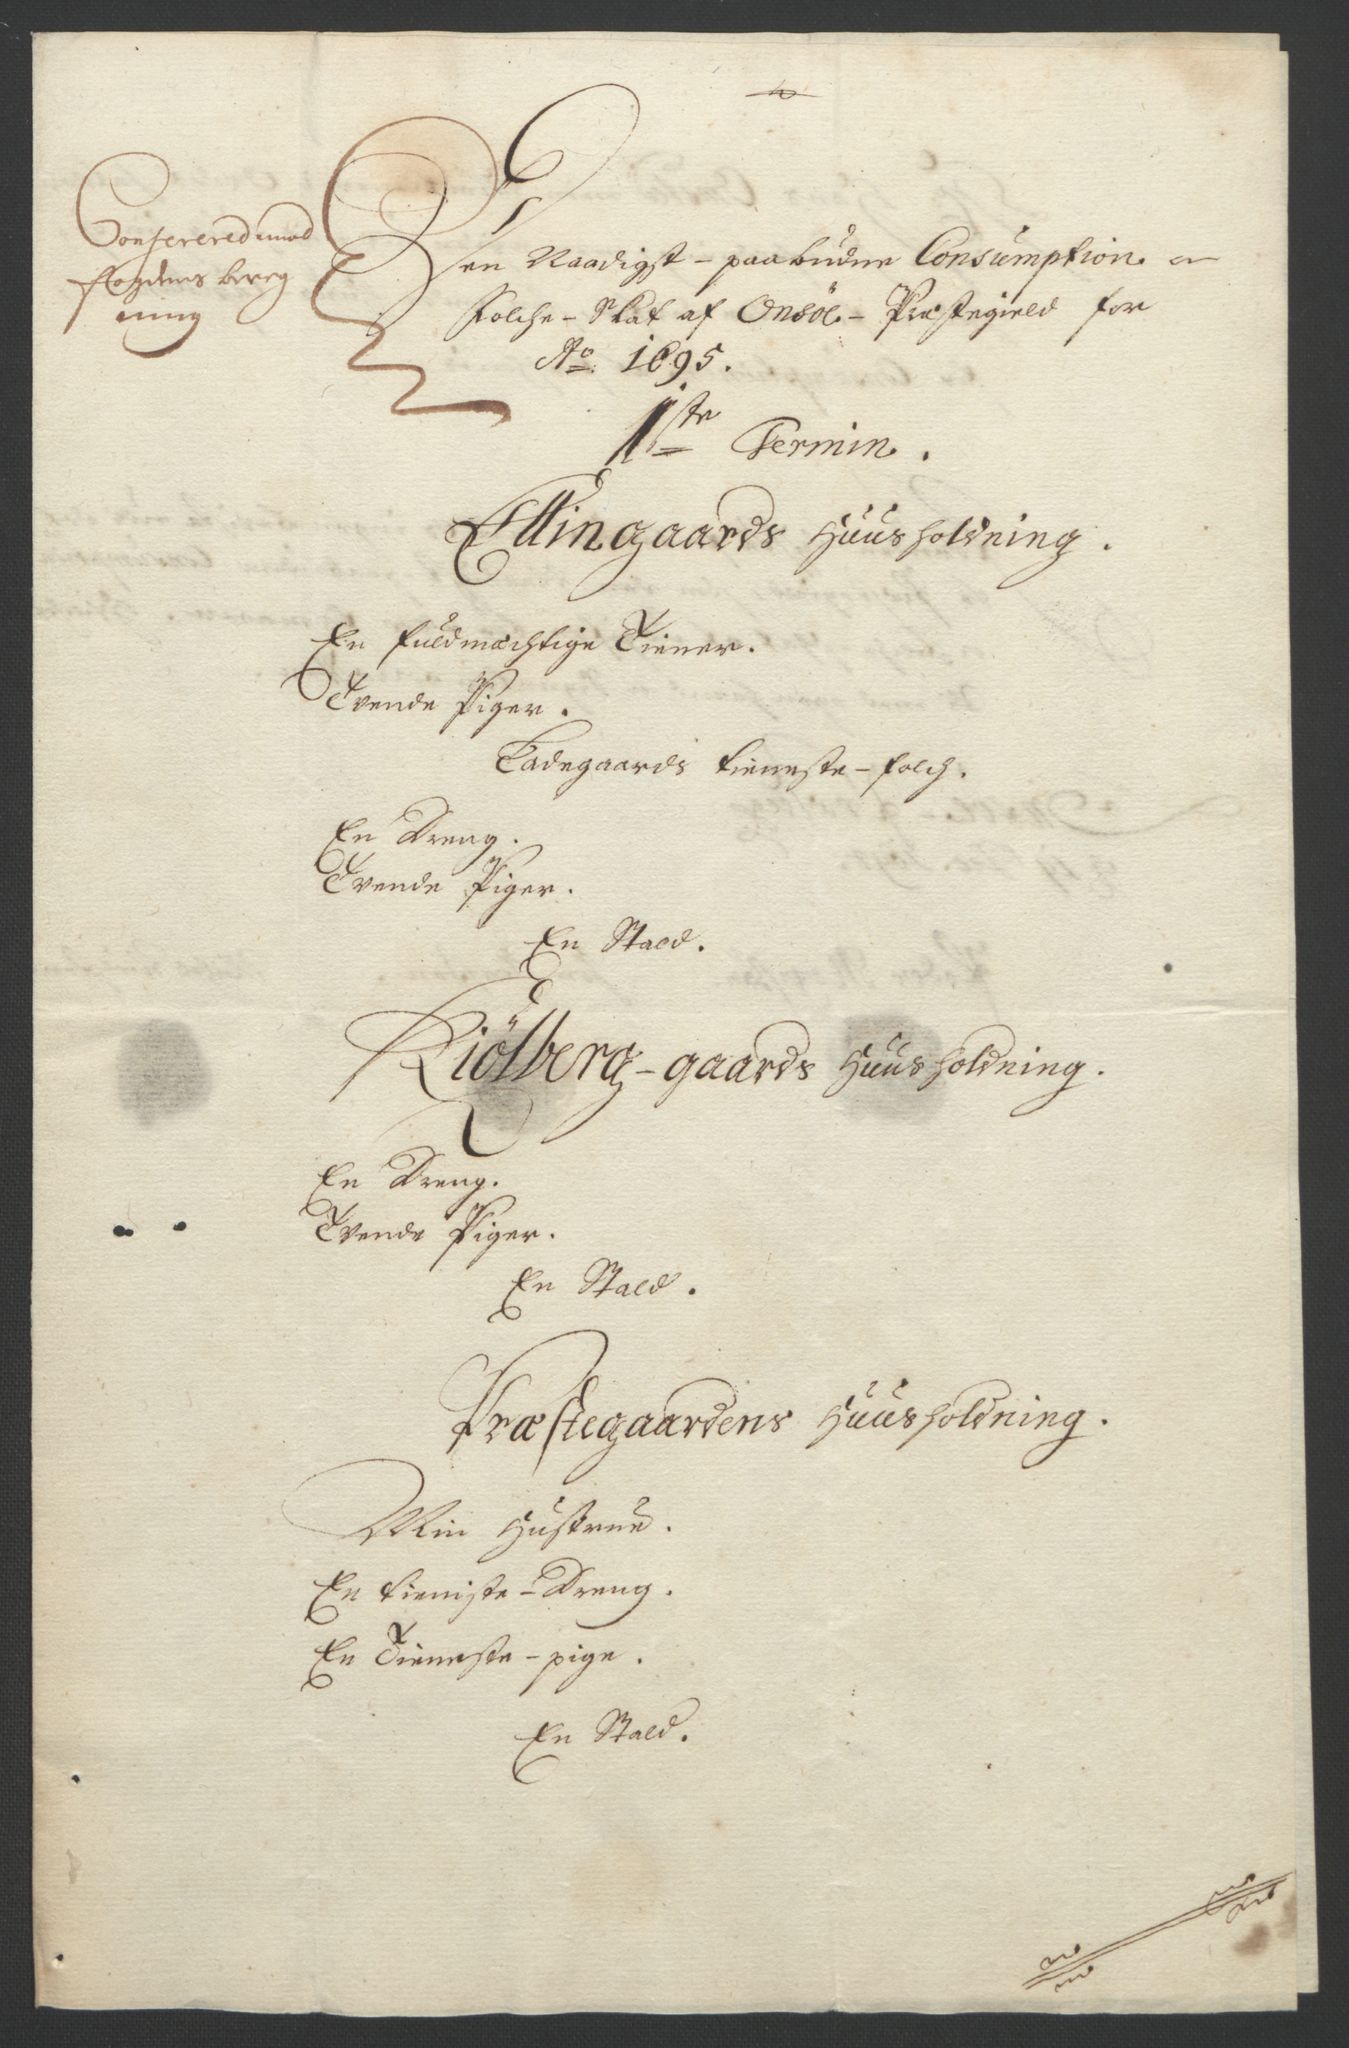 Conferered imod
fogdens bereg
ning
Den Naadigst-paabudne Consumption. en
Folche-Skat af Onsöe-Præstegield for
Ao. 1695.
1ste Termin.
Ellingaards Huusholdning.
En fuldmæchtige Tiener.
Tvende Piger.
Ladegaards tieneste-folch.
En Dreng.
Tvende Piger.
En Stald.
Kiölberg-gaards Huusholdning.
En Dreng.
Tvende Piger.
En Stald.
Præstegaardens Huusholdning.
Min Hustrue.
En tieniste-Dreng.
En Tieneste-pige.
En Stald.